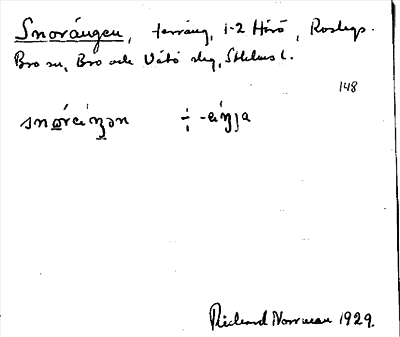 Snorängen, terräng, 1-2 Härö, Roslags-
Bro sn, Bro och Vätö slg, Sthlms l.
148
÷ -äŋja
Rickard Norrman 1929.